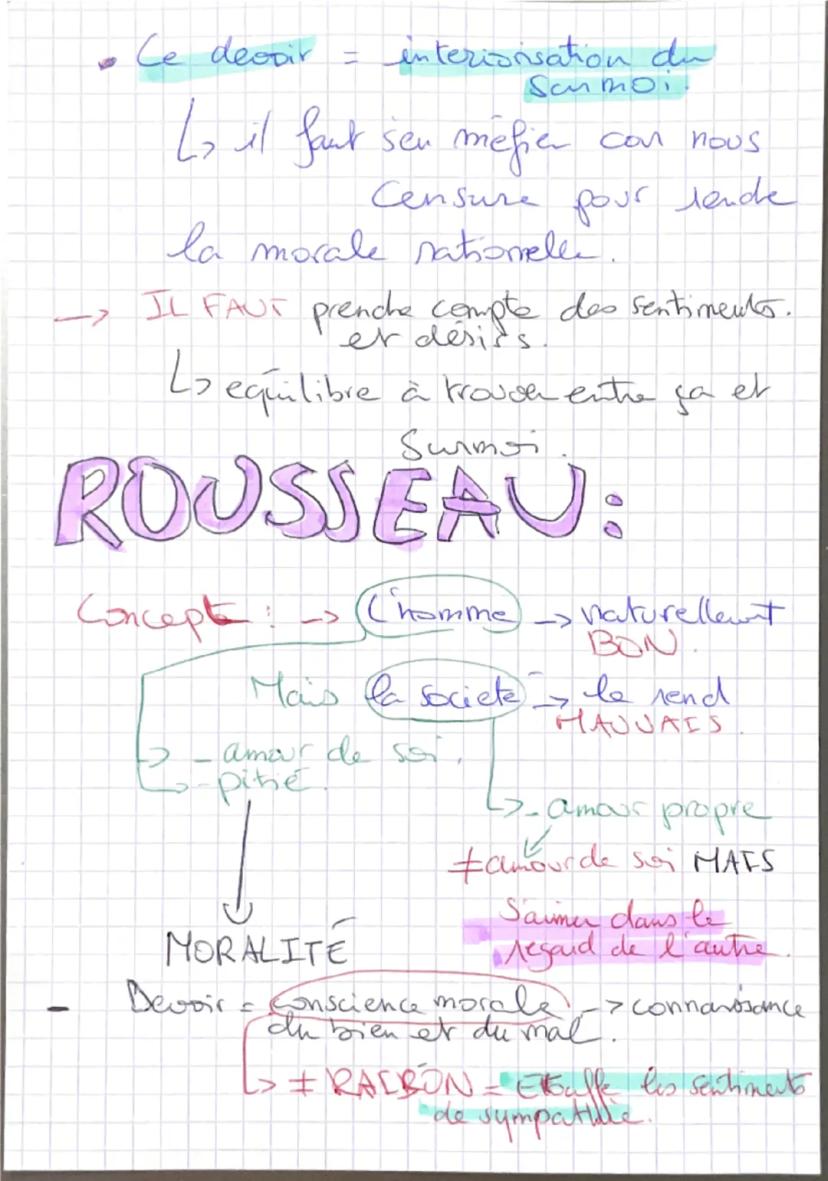 • Le devoir = interiorisation du
Surmoi.
↳ il faut s'en méfier car nous
Censure pour rende
la morale rationnelle.
→ IL FAUT prendre compte des sentiments.
et désirs.
↳ equilibre à trouver entre ça et
Surmoi.
ROUSSEAU:
Concept : → L'homme → naturellement
BON.
Mais la societe → le rend
MAUVAIS.
- amour de soi.
- pitié.
↳ - amour propre
≠ amour de soi MAIS
S'aimer dans le
regard de l'autre.
MORALITÉ
- Devoir = conscience morale → connaissance
du bien et du mal.
↳ ≠ RAISON = Etouffe les sentiments
de sympathie.